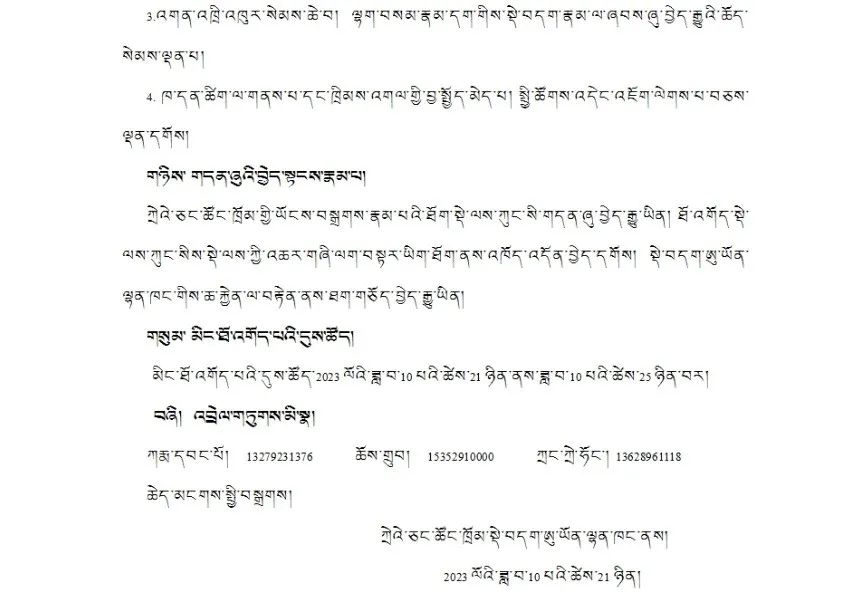 3.འགན་འཁྲི་འཁུར་སེམས་ཆེ་བ། ལྷག་བསམ་རྣམ་དག་གིས་སྡེ་བདག་རྣམ་ལ་ཞབས་ཞུ་བྱེད་རྒྱུའི་ཆོད་
སེམས་ལྡན་པ།
4. ཁ་དན་ཚིག་ལ་གནས་པ་དང་ཁྲིམས་འགལ་གྱི་བྱ་སྤྱོད་མེད་པ། སྤྱི་ཚོགས་འདེང་འཇོག་ལེགས་པ་བཅས་
ལྡན་དགོས།
གཉིས་ གདན་ཞུའི་བྱེད་སྟངས་རྣམ་པ།
ཀྲེའེ་ཅང་ཚོང་ཁྲོམ་གྱི་ཡོངས་བསྒྲགས་རྣམ་པའི་ཐོག་སྡེ་ལས་ཀུང་སི་གདན་ཞུ་བྱེད་རྒྱུ་ཡིན། ཐོ་འགོད་སྡེ་
ལས་ཀུང་སིས་སྡེ་ལས་ཀྱི་འཆར་གཞི་ལག་བསྟར་ཡིག་ཐོག་ནས་འཁོད་འདོན་བྱེད་དགོས། སྡེ་བདག་ཨུ་ཡོན་
ལྷན་ཁང་གིས་ཆ་རྐྱེན་ལ་བརྟེན་ནས་ཐག་གཅོད་བྱེད་རྒྱུ་ཡིན།
གསུམ་ མིང་ཐོ་འགོད་པའི་དུས་ཚོད།
མིང་ཐོ་འགོད་པའི་དུས་ཚོད་2023 ལོའི་ཟླ་བ་10 པའི་ཚེས་21 ཉིན་ནས་ཟླ་བ་10 པའི་ཚེས་25 ཉིན་བར།
བཞི། འབྲེལ་གཏུགས་མི་སྣ།
ཀརྨ་དབང་པོ། 13279231376 ཆོས་གྲུབ། 15352910000 ཀྲང་ཀྲེ་ཧོང་། 13628961118
ཆེད་མངགས་སྤྱི་བསྒྲགས།
ཀྲེའེ་ཅང་ཚོང་ཁྲོམ་སྡེ་བདག་ཨུ་ཡོན་ལྷན་ཁང་ནས།
2023 ལོའི་ཟླ་བ་10 པའི་ཚེས་21 ཉིན།